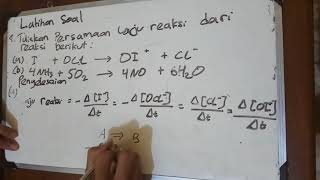 Latihan Soal
1. Tuliskan Persamaan Laju reaksi dari
reaksi berikut :
(a) I + OCl → OI⁻ + Cl⁻
(b) 4NH₃ + 5O₂ → 4NO + 6H₂O
Penyelesaian
(a)
Laju Reaksi = -Δ[I⁻]/Δt = -Δ[OCl⁻]/Δt = Δ[Cl⁻]/Δt = Δ[OI⁻]/Δt
A → B